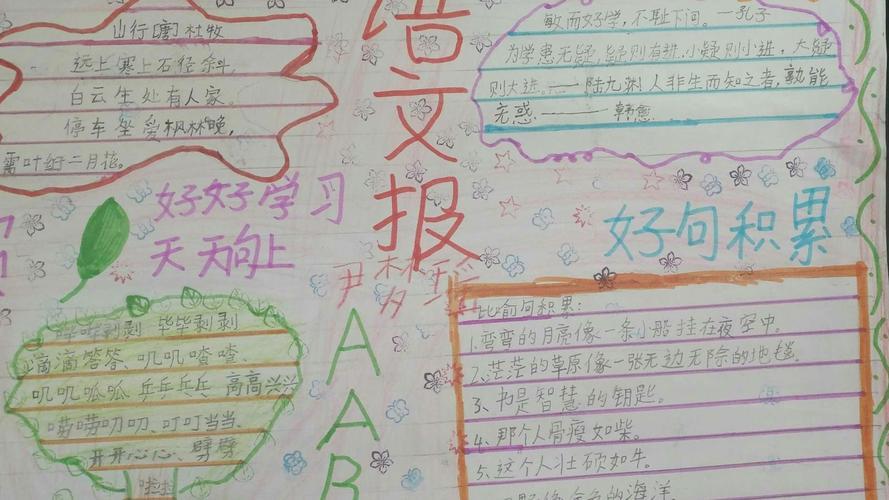 山行 唐 杜牧
远上寒上石径斜,
白云生处有人家。
停车坐爱枫林晚,
霜叶红于二月花。
语文报
敏而好学,不耻下问。一孔子
为学患无疑,疑则有进.小疑则小进,大疑
则大进。——陆九渊人非生而知之者,孰能
无惑———韩愈
好好学习
天天向上
好句积累
尹梦瑶
哔哔剥剥 毕毕剥剥
滴滴答答、叽叽喳喳、
叽叽呱呱 乒乒乓乓 高高兴兴
唠唠叨叨、叮叮当当、
开开心心、劈劈
AAB
比喻句积累:
1.弯弯的月亮像一条小船挂在夜空中。
2、茫茫的草原像一张无边无际的地毯。
3、书是智慧的钥匙。
4、那个人骨瘦如柴。
5、这个人壮硕如牛。
像金色的海洋